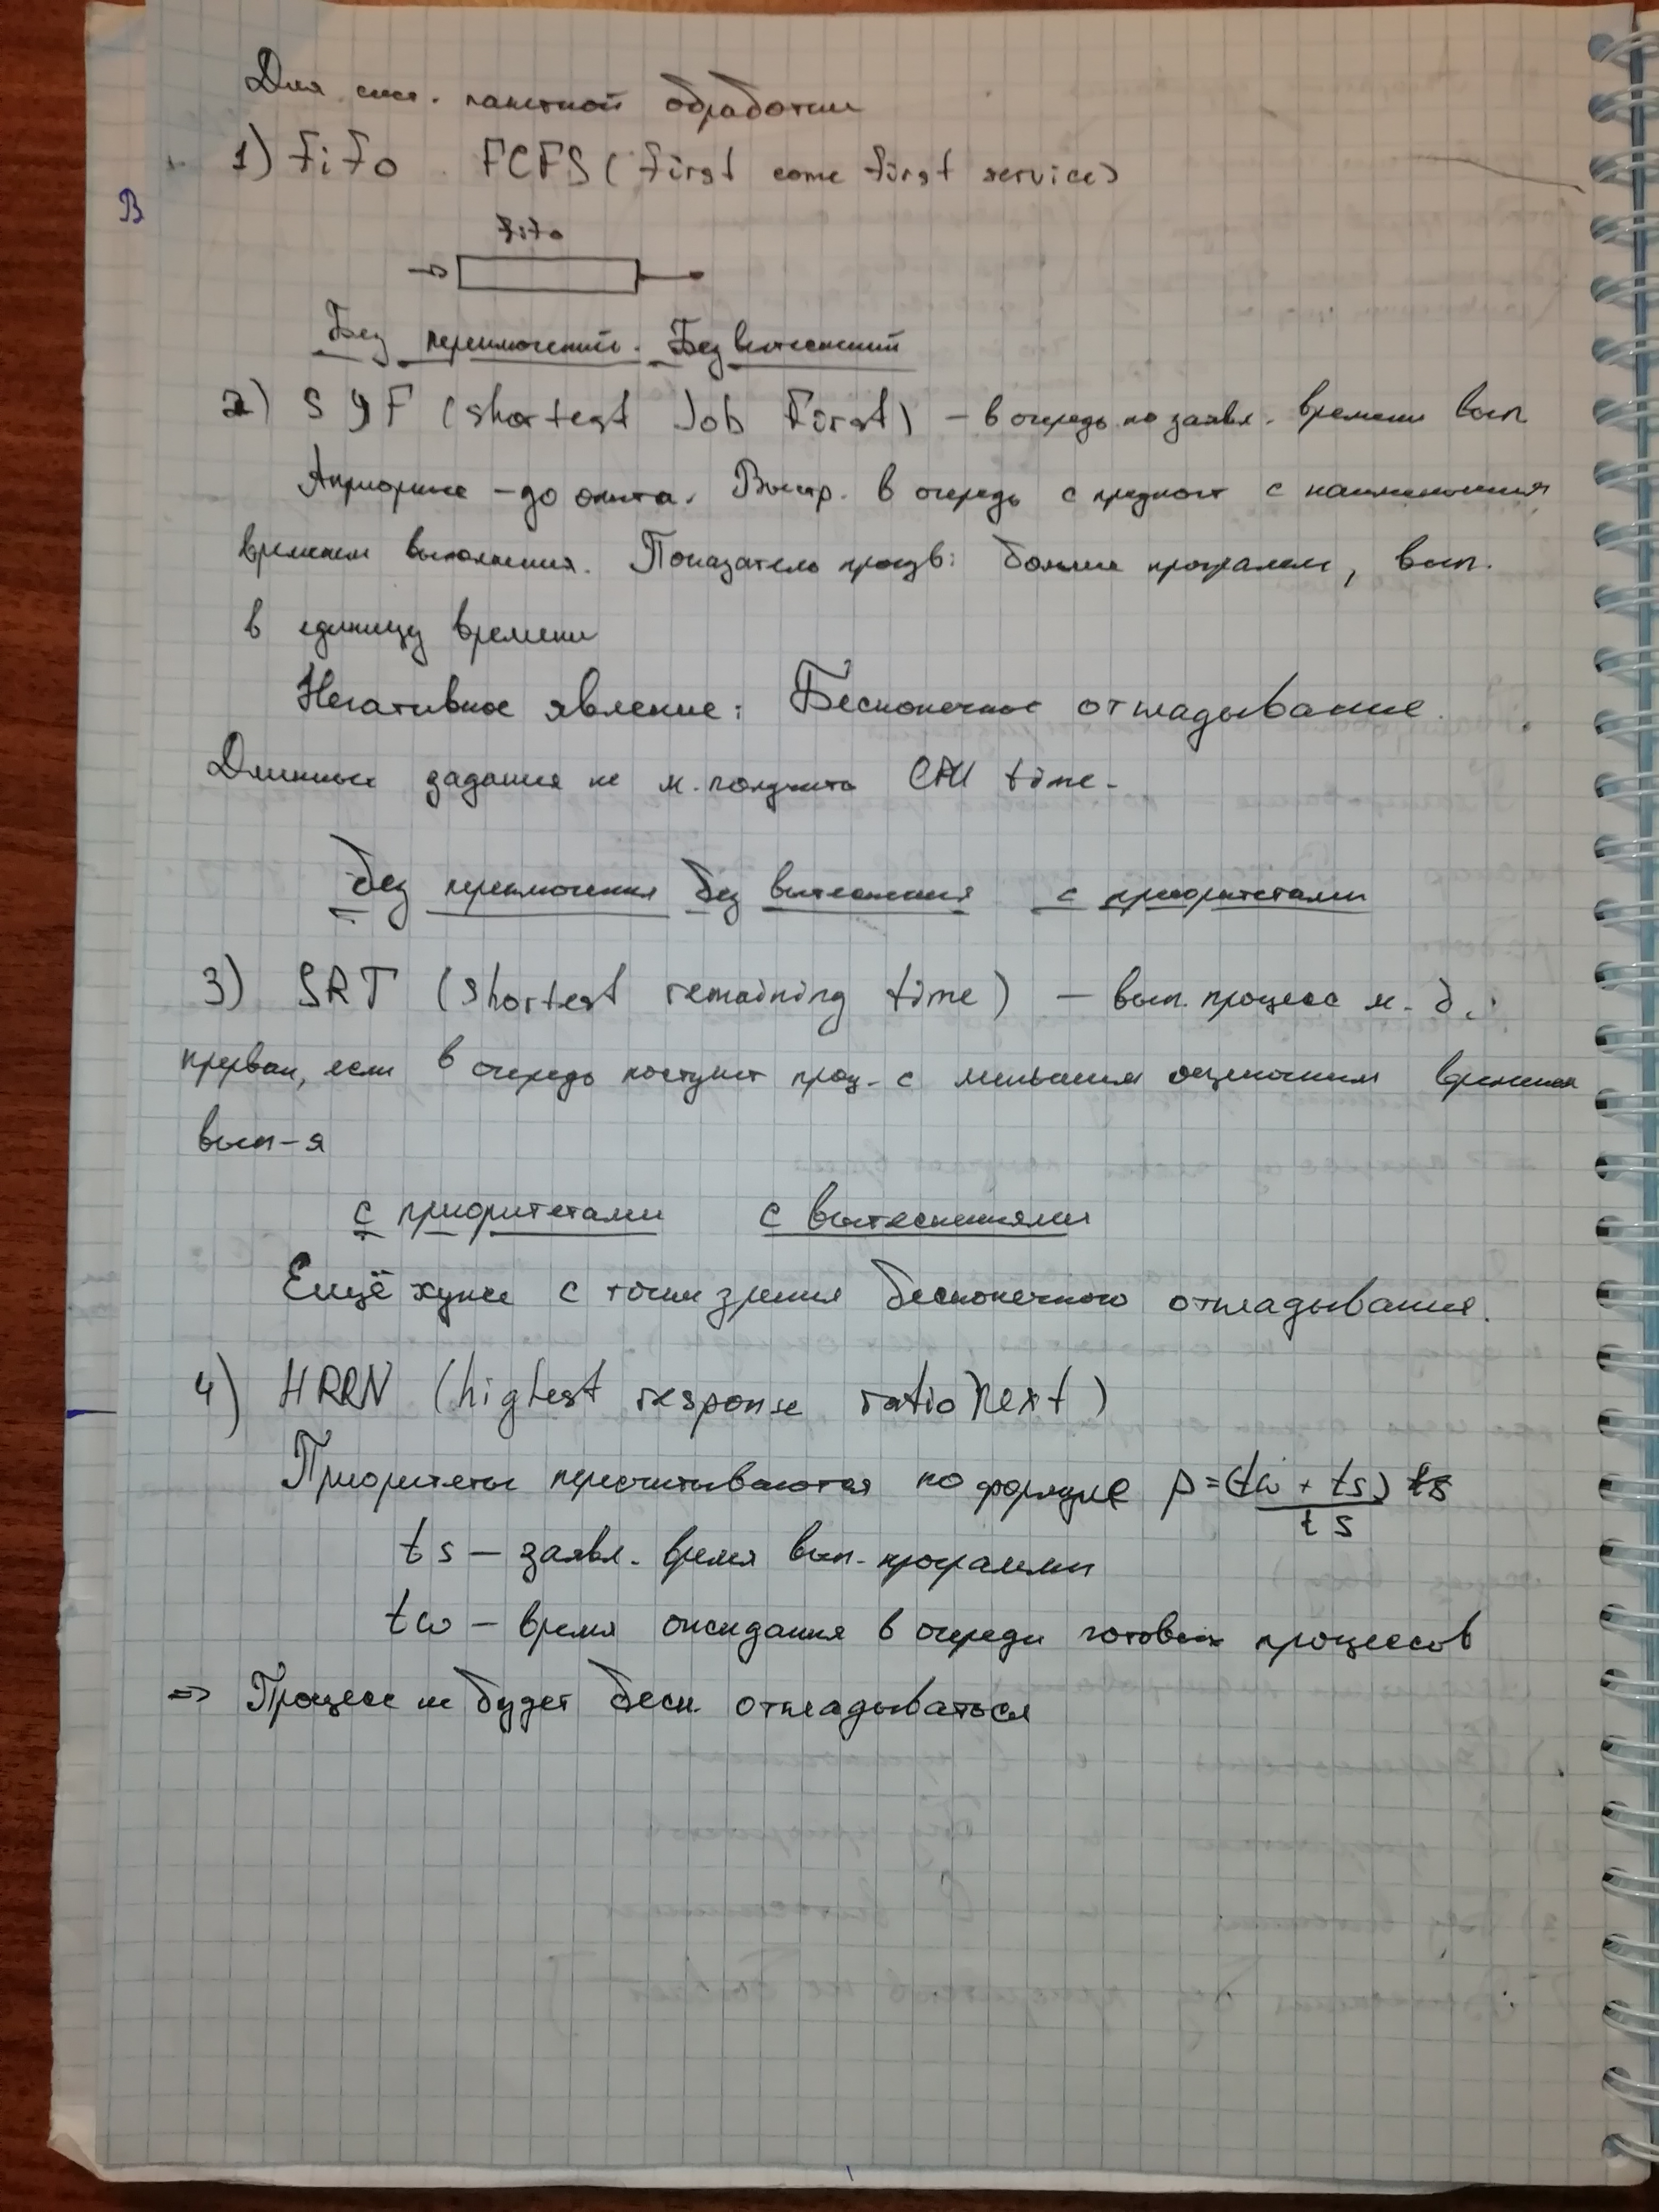 Для сист. пакетной обработки
1) FiFo FCFS (first come first service)
В
FiFo
Без переключений. Без вытеснений
2) SJF (shortest Job First) – в очередь по заявл. времени вып
Априорные – до опыта. Выстр. в очередь с наименьшим
временем выполнения. Показатель произв: больше программ, вып.
в единицу времени
Негативное явление: Бесконечное откладывание.
Длинные задания не м. получить CPU time.
без переключения без вытеснения с приоритетами
3) SRT (shortest remaining time) – вып. процесс м. б.
прерван, если в очередь поступит проц. с меньшим оценочным временем
вып-я
с приоритетами с вытеснениями
Ещё хуже с точки зрения бесконечного откладывания.
4) HRRN (highest response ratio next)
Приоритеты пересчитываются по формуле p = (tw + ts)
ts
ts – заявл. время вып. программы
tw – время ожидания в очереди готовых процессов
=> Процесс не будет беск. откладываться